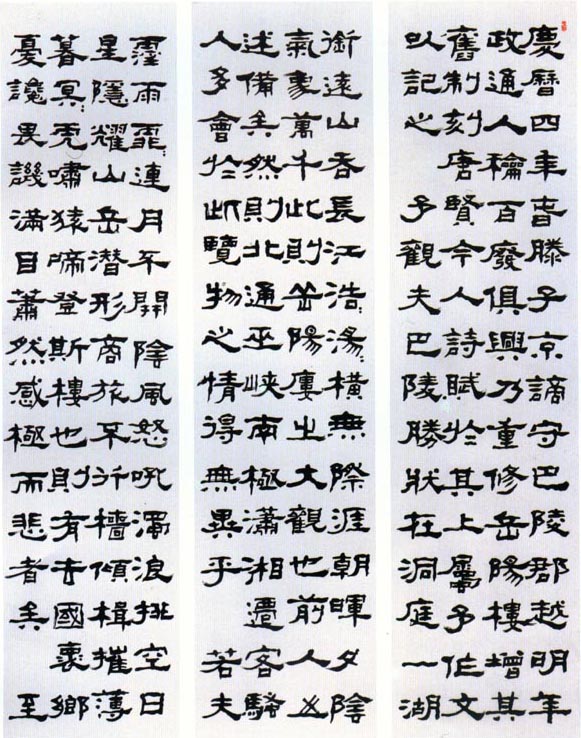 慶曆四年春滕子京謫守巴陵郡越明年
政通人龢百廢俱興乃重修岳陽樓增其
舊制刻唐賢今人詩賦於其上屬予作文
以記之予觀夫巴陵勝狀在洞庭一湖
銜遠山吞長江浩〻湯〻橫無際涯朝暉夕陰
氣象萬千此則岳陽樓之大觀也前人之
述備矣然則北通巫峽南極瀟湘遷客騷
人多會於此覽物之情得無異乎若夫
霪雨霏〻連月不開陰風怒吼濁浪排空日
星隱耀山岳潛形商旅不行檣傾楫摧薄
暮冥〻虎嘯猿啼登斯樓也則有去國懷鄉
憂讒畏譏滿目蕭然感極而悲者矣至